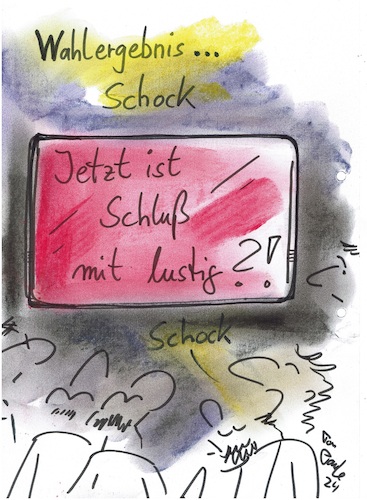 Wahlergebnis...
Schock
Jetzt ist
Schluß
mit lustig ?!
Schock
24